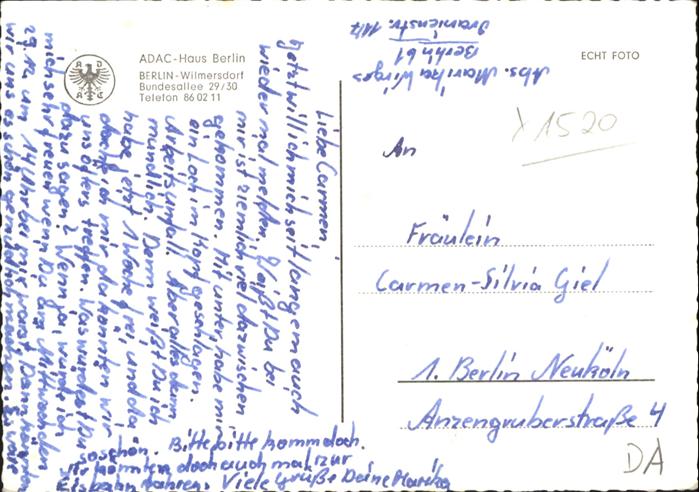 ADAC-Haus Berlin
BERLIN-Wilmersdorf
Bundesallee 29/30
Telefon 86 02 11
ECHT FOTO
Abs. Marika
Berlin 61
Oranienstr.
1520
An
Fräulein
Carmen-Silvia Giel
1. Berlin Neuköln
Anzengruberstraße 4
DA
Liebe Carmen,
jetzt will ich mich seit langem auch
wieder mal melden. Weißt Du bei
mir ist ziemlich viel dazwischen
gekommen. Mit unter habe mir
ein Loch im Kopf geschlagen.
Arbeitsunfall. Aber alles dann
mündlich. Denn weißt Du ich
habe jetzt 1 Woche frei und da
dachte ich mir da könnten wir
uns öfters treffen. Was würdest Du
dazu sagen? Wenn ja, würde ich
mich sehr freuen wenn Du am Mittwoch den
29.12. um 14 Uhr bei mir wärst. Dann könnten
wir uns es schön gemütlich machen. Es war
so schön. Bitte bitte komm doch.
Wir könnten doch auch mal zur
Eisbahn fahren. Viele Grüße Deine Marika